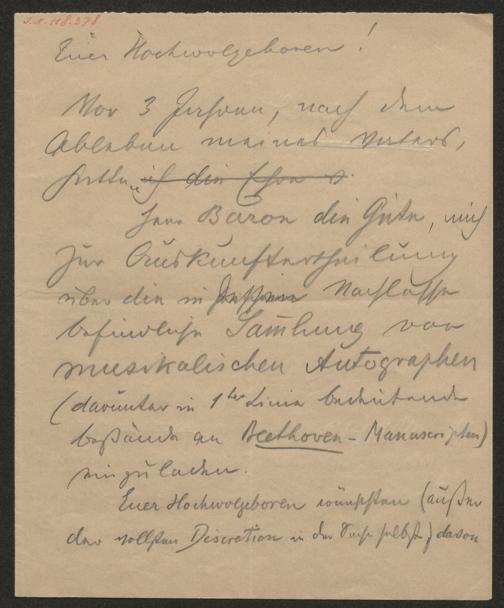 I.N. 118.278
Euer Hochwolgeboren!
Vor 3 Jahren, nach dem
Ableben meines Vaters,
hatten ich die Ehre
Herr Baron die Güte, mich
zur Auskunftertheilung
über die in Nachlasse
befindliche Samlung von
musikalischen Autographen
(darunter in 1ter Linie bedeutende
Bestände an Beethoven-Manuscripten)
einzuladen.
Euer Hochwolgeboren wünschten (außer
der vollsten Discretion in der Sache selbst) davon